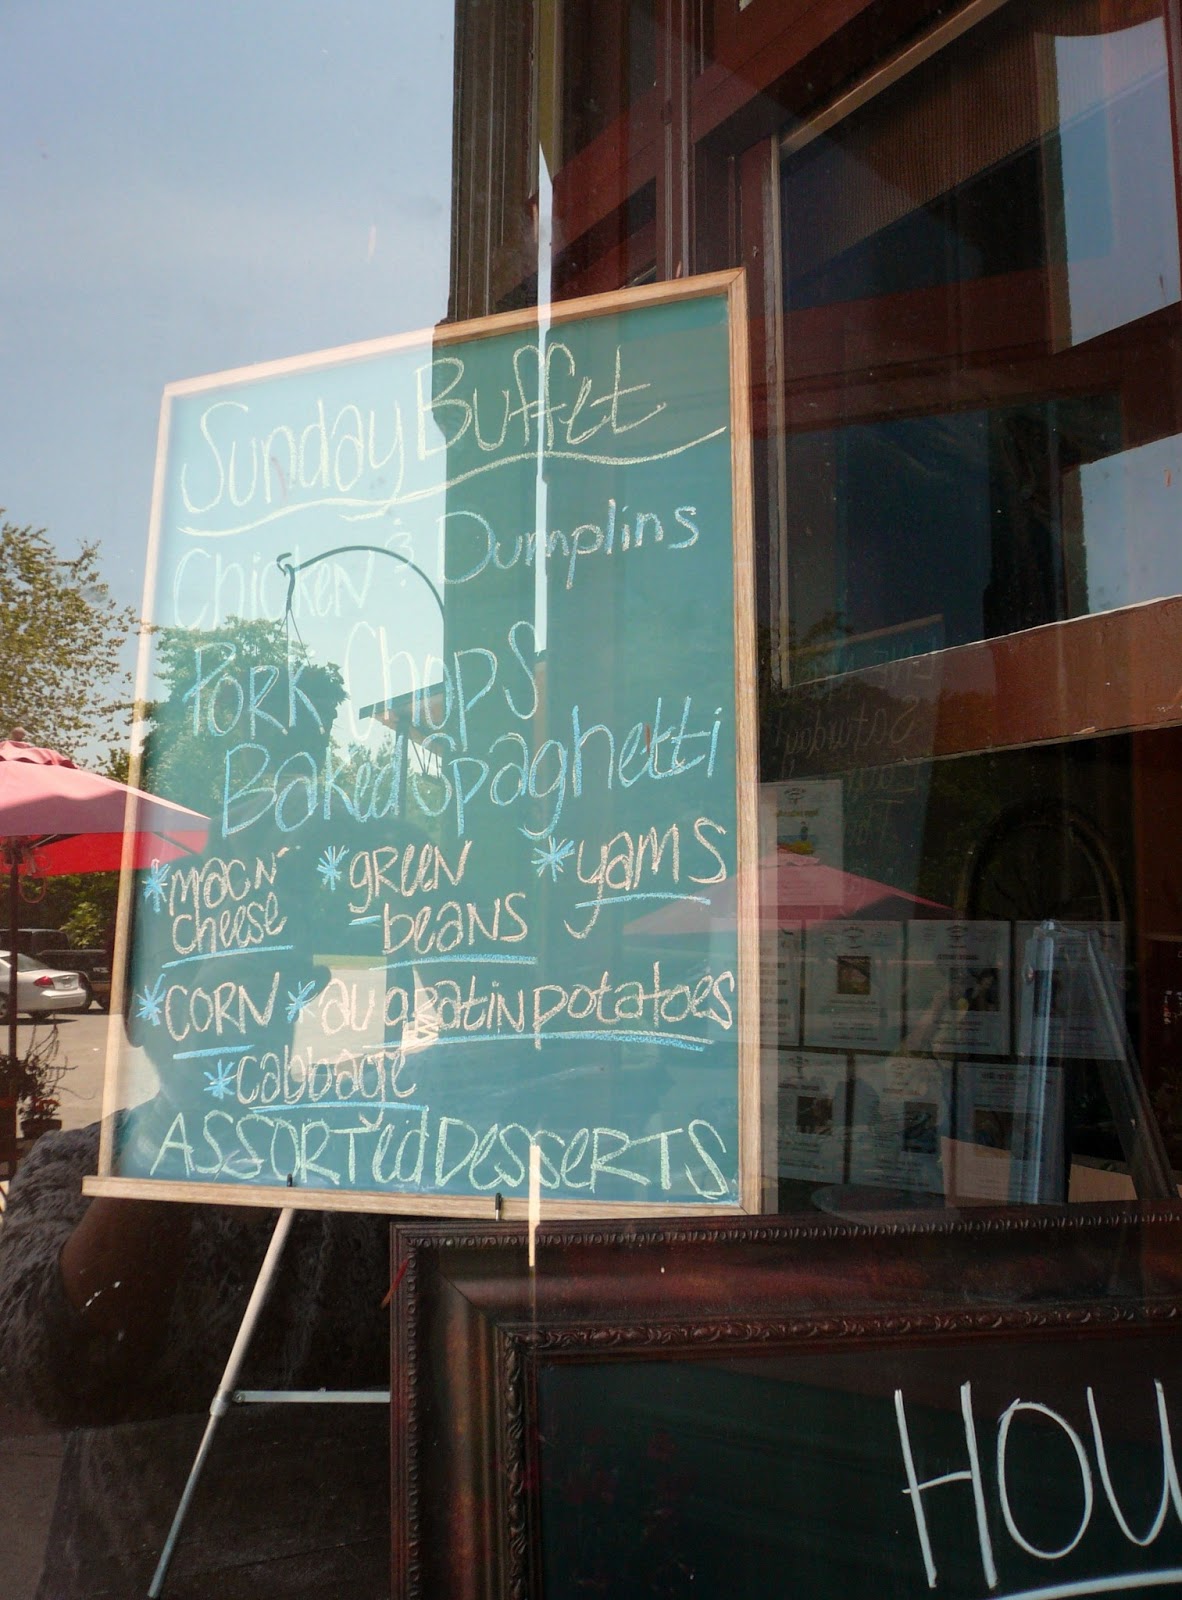 Sunday Buffet
Chicken & Dumplins
Pork Chops
Baked Spaghetti
*mac n' cheese *green beans *yams
*corn *au gratin potatoes
*cabbage
Assorted Desserts
HOU
Saturday